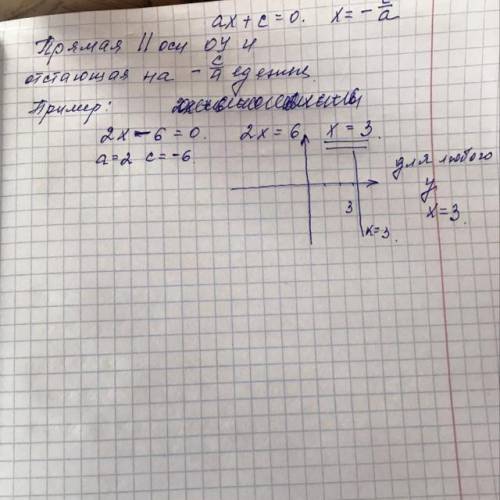 ax + c = 0. x = - c/a
Прямая || оси ОУ и
отстающая на - c/a единиц.
Пример:
2x - 6 = 0. 2x = 6 x = 3.
a = 2 c = -6
для любого
y
x = 3.
3
x = 3.